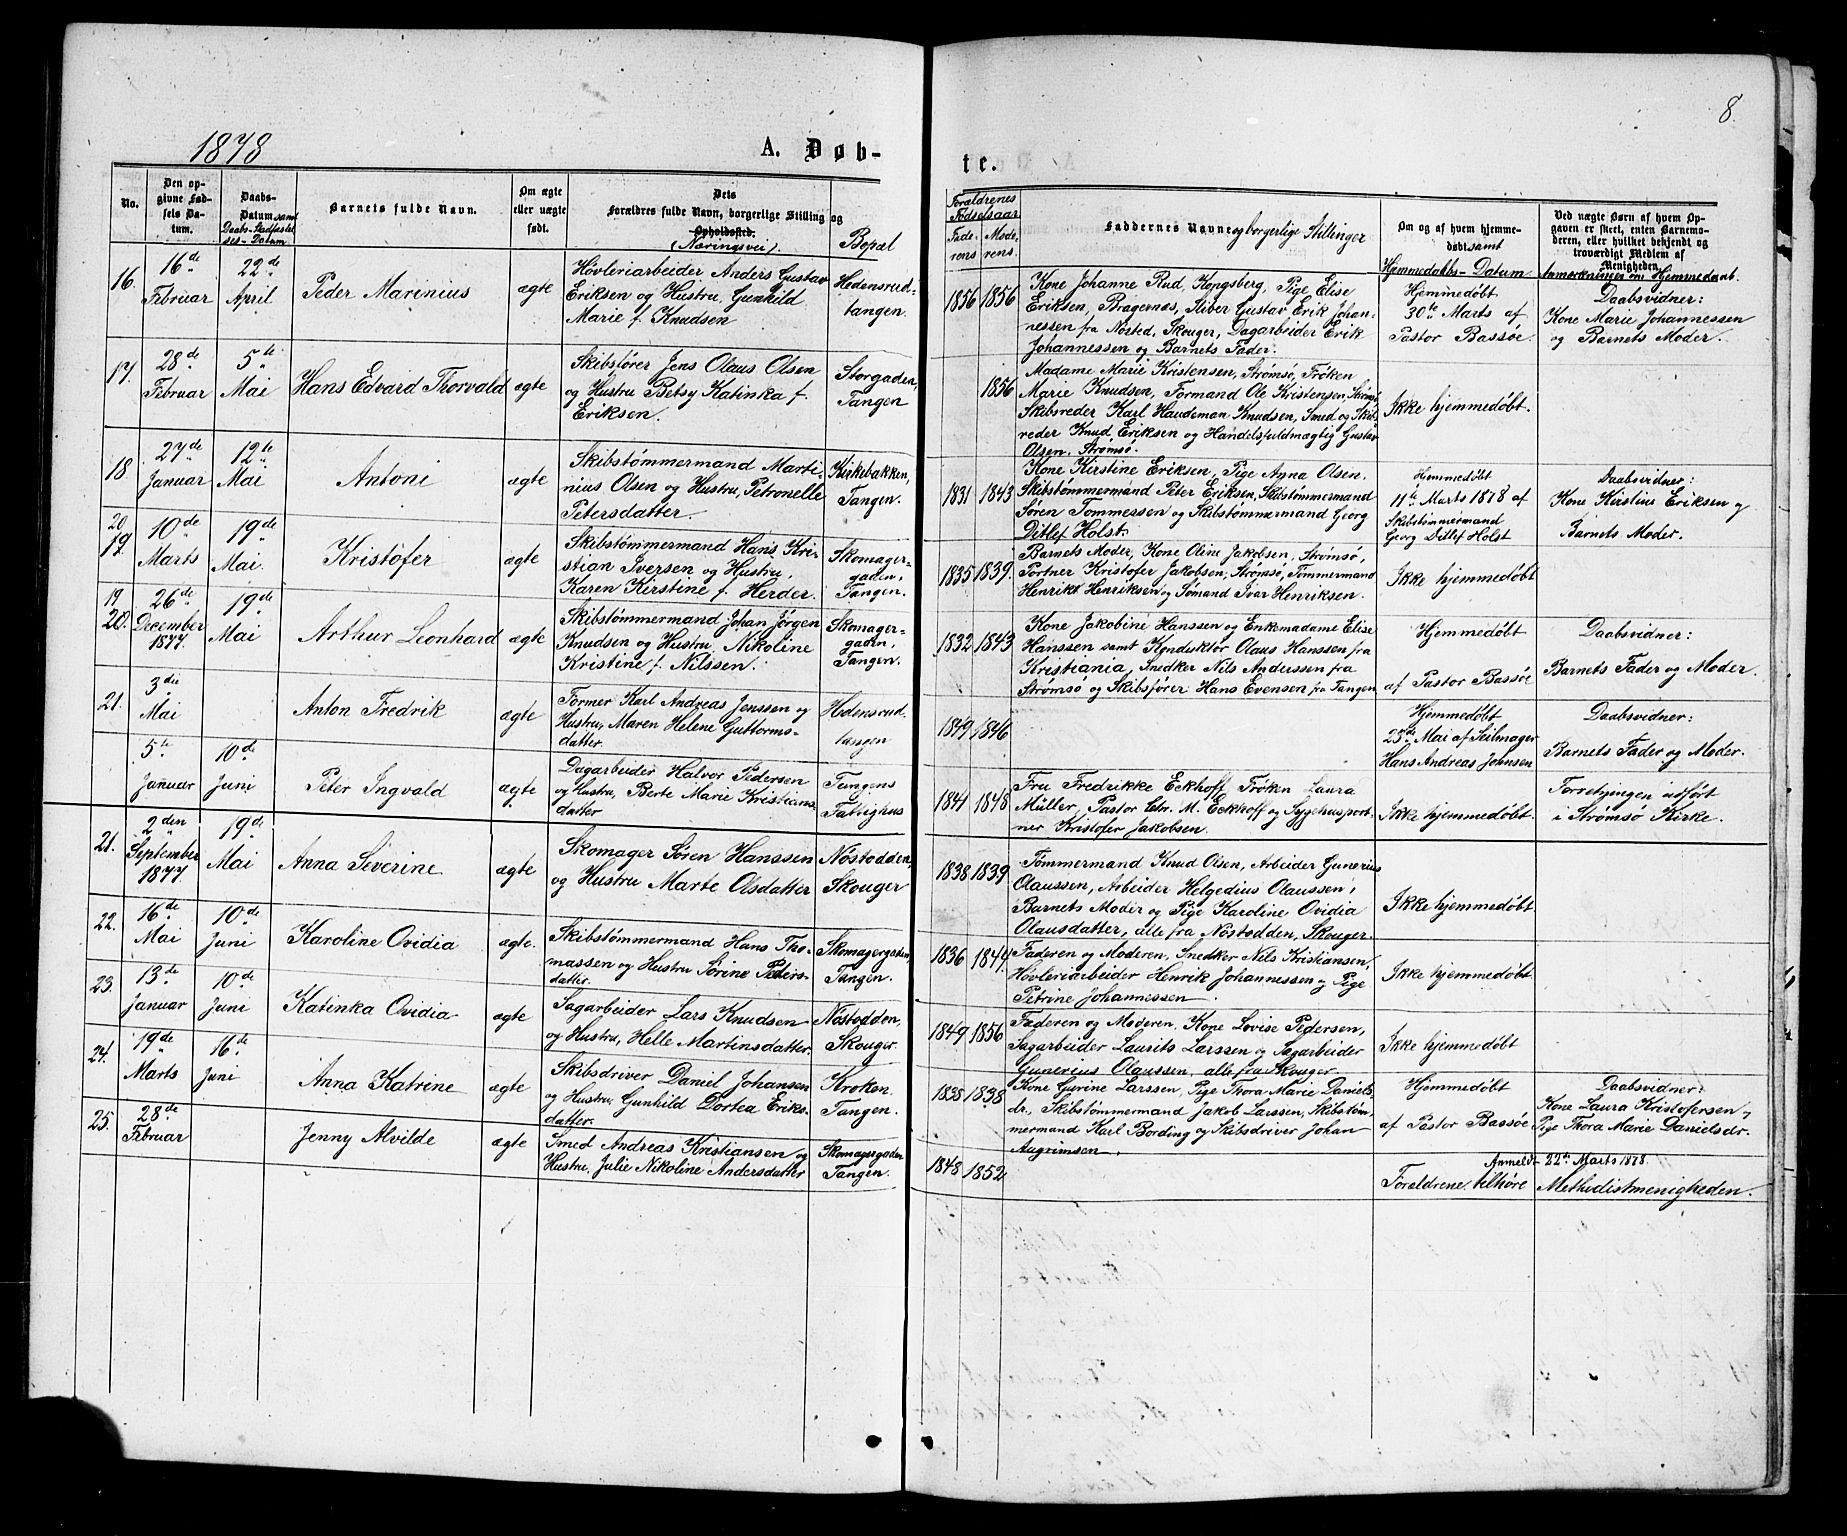 8.
1878
A. Døb-
te.
No.
Den op-
givne Fød-
sels Da-
tum.
Daabs-
Datum samt
Daabs-Stadfæstel-
ses-Datum
Barnets fulde Navn.
Om ægte
eller uægte
født.
Dets
Forældres fulde Navn, borgerlige Stilling og
Opholdssted.
(Næringsvei).
Bopæl
Forældrenes
Fødselsaar
Fade-
rens
Mode-
rens.
Faddernes Navne og borgerlige Stillinger
Om og af hvem hjemme-
døbt samt
Hjemmedaabs-Datum
Ved uægte Børn af hvem Op-
gaven er skeet, enten Barnemo-
deren, eller hvilket bekjendt og
troværdigt Medlem af
Menigheden.
Anmærkninger om Hjemmedaab.
16.
16de
Februar
22de
April
Peder Marinius
ægte
Høvleriarbeider Anders Gustav
Eriksen og Hustru, Gunhild
Marie f. Knudsen
Hedensrud-
tangen.
1856
1856
Kone Johanne Rud, Kongsberg, Pige Elise
Eriksen, Bragernæs, Sliber Gustav Erik Johan-
nessen fra Nøsted, Skouger, Dagarbeider Erik
Johannessen og Barnets Fader.
Hjemmedøbt
30te Marts af
Pastor Bassøe
Daabsvidner:
Kone Marie Johannessen
og Barnets Moder.
17.
28de
Februar
5te
Mai
Hans Edvard Thorvald
ægte
Skibsfører Jens Olaus Olsen
og Hustru Betsy Katinka f.
Eriksen.
Storgaden,
Tangen
1856
Madame Marie Kristensen, Strømsø, Frøken
Marie Knudsen, Formand Ole Kristensen, Strømsø,
Skibsreder Karl Haudeman Knudsen, Smed og Skibs-
reder Knud Eriksen og Handelsfuldmægtig Gustav
Olsen, Strømsø.
Ikke hjemmedøbt.
18.
27de
Januar
12te
Mai
Antoni
ægte
Skibstømmermand Marti-
nius Olsen og Hustru, Petronelle
Petersdatter.
Kirkebakken,
Tangen.
1831
1843
Kone Kirstine Eriksen, Pige Anna Olsen,
Skibstømmermand Peter Eriksen, Skibstømmermand
Søren Tommessen og Skibstømmermand Georg
Ditlef Holst.
Hjemmedøbt
11te Marts 1878 af
Skibstømmermand
Georg Ditlef Holst
Daabsvidner:
Kone Kirstine Eriksen og
Barnets Moder.
20
19.
10de
Marts
19de
Mai.
Kristofer
ægte
Skibstømmermand Hans Kri-
stian Iversen og Hustru,
Karen Kirstine f. Herder.
Skomager-
gaden,
Tangen.
1835
1839.
Barnets Moder, Kone Oline Jakobsen, Strømsø,
Portner Kristofer Jakobsen, Strømsø, Tømmermand
Henrikt Henriksen og Sømand Ivar Henriksen.
Ikke hjemmedøbt
19.
20.
26de
December
1877.
19de
Mai
Arthur Leonhard
ægte
Skibstømmermand Johan Jørgen
Knudsen og Hustru, Nikoline
Kristine f. Nilssen.
Skomager-
gaden,
Tangen.
1832
1843
Kone Jakobine Hanssen og Enkemadame Elise
Hanssen samt Konduktør Olaus Hanssen fra
Kristiania, Snedker Nils Anderssen fra
Strømsø og Skibsfører Hans Evensen fra Tangen
Hjemmedøbt
af Pastor Bassøe
Daabsvidner:
Barnets Fader og Moder.
21.
3die
Mai
Anton Fredrik
ægte
Former Karl Andreas Jenssen og
Hustru, Maren Helene Guttorms-
datter.
Hedensrud-
tangen
1849
1846
Hjemmedøbt
25de Mai af Seilmager
Hans Andreas Johnsen
Daabsvidner:
Barnets Fader og Moder.
5te
Januar
10de
Juni
Peter Ingvald
ægte
Dagarbeider Halvor Pedersen
og Hustru, Berte Marie Kristians-
datter
Tangens
Fattighus
1841
1848
Fru Fredrikke Eckhoff, Frøken Laura
Müller, Pastor Chr. M. Eckhoff og Sygehusport-
ner Kristofer Jakobsen.
Ikke hjemmedøbt.
Forretningen udført
i Strømsø Kirke.
21.
2den
September
1877.
19de
Mai
Anna Severine
ægte
Skomager Søren Hanssen
og Hustru Marte Olsdatter
Nøstodden,
Skouger
1838
1839
Tømmermand Knud Olsen, Arbeider Gunerius
Olaussen, Arbeider Helgedius Olaussen,
Barnets Moder og Pige Karoline Ovidia
Olausdatter, alle fra Nøstodden, Skouger.
Ikke hjemmedøbt.
22.
16de
Mai
10de
Juni
Karoline Ovidia
ægte.
Skibstømmermand Hans Tho-
massen og Hustru Sørine Peders-
datter.
Skomagergaden,
Tangen.
1836
1844
Faderen og Moderen, Snedker Nils Kristiansen,
Høvleriarbeider Henrik Johannessen og Pige
Petrine Johannessen.
Ikke hjemmedøbt.
23.
13de
Januar
10de
Juni
Katinka Ovidia
ægte
Sagarbeider Lars Knudsen
og Hustru, Helle Martinsdatter.
Nøstodden,
Skouger.
1849
1856
Faderen og Moderen, Kone Lovise Pedersen,
Sagarbeider Laurits Larssen og Sagarbeider
Gunerius Olaussen, alle fra Skouger
Ikke hjemmedøbt
24.
19de
Marts
16de
Juni
Anna Katrine
ægte
Skibsdriver Daniel Johansen
og Hustru, Gunhild Dortea Eriks-
datter.
Kroken,
Tangen.
1838
1838
Kone Gurine Larssen, Pige Thora Marie Daniels-
dr., Skibstømmermand Jakob Larssen, Skibstøm-
mermand Karl Bording og Skibsdriver Johan
Augrimsen.
Hjemmedøbt
af Pastor Bassøe
Daabsvidner:
Kone Laura Kristofersen,
Pige Thora Marie Danielsdr.
25.
28de
Februar
Jenny Alvilde
ægte
Smed Andreas Kristiansen og
Hustru, Julie Nikoline Andersdatter
Skomagergaden
Tangen.
1848
1852
Anmeldt 22de Marts 1878.
Forældrene tilhøre Methodistmenigheden.